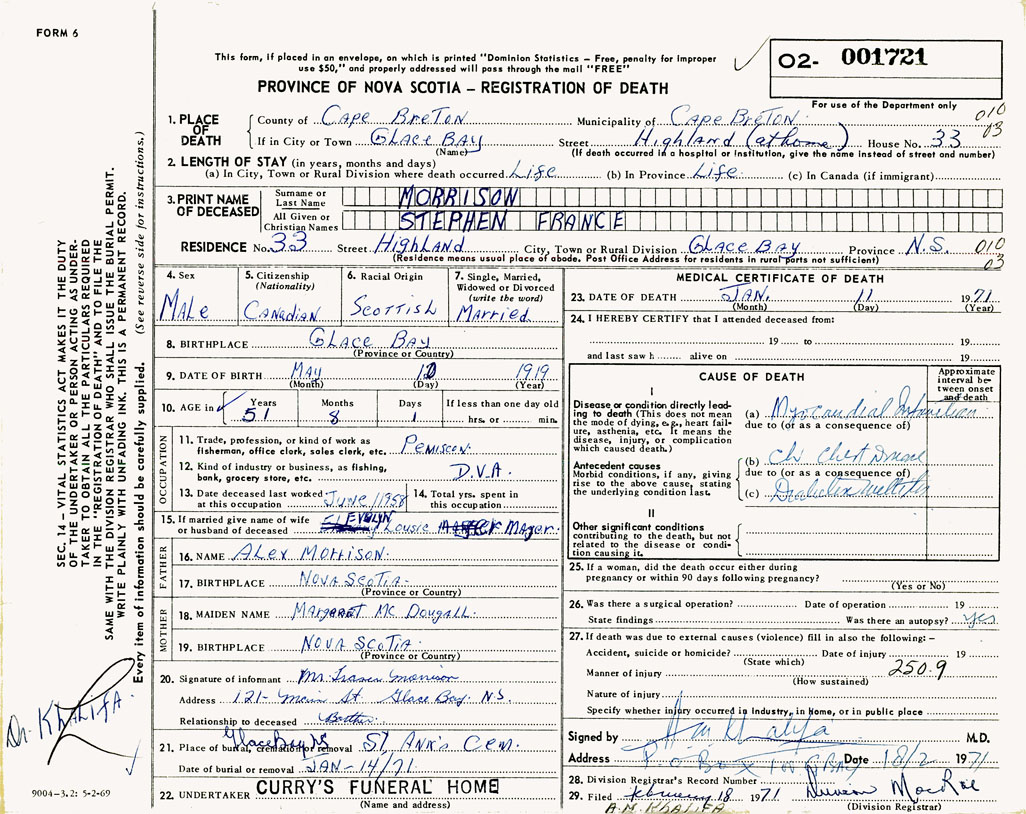 FORM 6
This form, if placed in an envelope, on which is printed "Dominion Statistics – Free, penalty for improper
use $50," and properly addressed will pass through the mail "FREE"
O2- 001721
PROVINCE OF NOVA SCOTIA – REGISTRATION OF DEATH
For use of the Department only
010
03
1. PLACE OF DEATH
County of Cape Breton Municipality of Cape Breton
If in City or Town Glace Bay Street Highland (at home) House No. 33
(Name) (If death occurred in a hospital or institution, give the name instead of street and number)
2. LENGTH OF STAY (in years, months and days)
(a) In City, Town or Rural Division where death occurred Life (b) In Province Life (c) In Canada (if immigrant)
3. PRINT NAME OF DECEASED
Surname or Last Name MORRISON
All Given or Christian Names STEPHEN FRANCE
RESIDENCE No. 33 Street Highland City, Town or Rural Division Glace Bay Province N.S. 010
(Residence means usual place of abode. Post Office Address for residents in rural parts not sufficient) 03
4. Sex
Male
5. Citizenship
(Nationality)
Canadian
6. Racial Origin
Scottish
7. Single, Married,
Widowed or Divorced
(write the word)
Married
8. BIRTHPLACE Glace Bay
(Province or Country)
9. DATE OF BIRTH May 10 1919
(Month) (Day) (Year)
10. AGE in Years Months Days If less than one day old
51 8 1 hrs. or min.
OCCUPATION
11. Trade, profession, or kind of work as
fisherman, office clerk, sales clerk, etc.
12. Kind of industry or business, as fishing,
bank, grocery store, etc. D.V.A.
13. Date deceased last worked
at this occupation June/1958
14. Total yrs. spent in
this occupation
15. If married give name of wife
or husband of deceased EVELYN Lousie Mager
FATHER
16. NAME Alex Morrison
17. BIRTHPLACE Nova Scotia
(Province or Country)
MOTHER
18. MAIDEN NAME Margaret McDougall
19. BIRTHPLACE Nova Scotia
(Province or Country)
20. Signature of informant Mr. Morrison
Address 121- Main St. Glace Bay N.S.
Relationship to deceased Brother
21. Place of burial, cremation or removal Glace Bay NS St Ann's Cem.
Date of burial or removal JAN-14/71
22. UNDERTAKER CURRY'S FUNERAL HOME
(Name and address)
MEDICAL CERTIFICATE OF DEATH
23. DATE OF DEATH JAN. 11 1971
(Month) (Day) (Year)
24. I HEREBY CERTIFY that I attended deceased from:
19 to 19
and last saw h alive on 19
CAUSE OF DEATH
Approximate
interval be-
tween onset
and death
I
Disease or condition directly lead-
ing to death (This does not mean
the mode of dying, e.g., heart fail-
ure, asthenia, etc. It means the
disease, injury, or complication
which caused death.)
(a) Myocardial Infarction
due to (or as a consequence of)
Antecedent causes
Morbid conditions, if any, giving
rise to the above cause, stating
the underlying condition last.
(b) Chr Chest Disease
due to (or as a consequence of)
(c) Diabetes mellitus
II
Other significant conditions
contributing to the death, but not
related to the disease or condi-
tion causing it.
25. If a woman, did the death occur either during
pregnancy or within 90 days following pregnancy?
(Yes or No)
26. Was there a surgical operation? Date of operation 19
State findings Was there an autopsy? yes
27. If death was due to external causes (violence) fill in also the following: –
Accident, suicide or homicide? Date of injury 19
(State which)
Manner of injury 250.9
(How sustained)
Nature of injury
Specify whether injury occurred in Industry, in Home, or in public place
Signed by Khalifa M.D.
Address P.O. Box 100 G Bay Date 18/2 1971
28. Division Registrar's Record Number
29. Filed february 18 1971
(Division Registrar)
A.M. KHALIFA
SEC. 14 – VITAL STATISTICS ACT MAKES IT THE DUTY
OF THE UNDERTAKER OR PERSON ACTING AS UNDER-
TAKER TO OBTAIN ALL THE PARTICULARS REQUIRED
IN THE "REGISTRATION OF DEATH" AND TO FILE THE
SAME WITH THE DIVISION REGISTRAR WHO SHALL ISSUE THE BURIAL PERMIT.
WRITE PLAINLY WITH UNFADING INK. THIS IS A PERMANENT RECORD.
Every item of information should be carefully supplied. (See reverse side for instructions.)
Dr. KHALIFA
9004-3.2: 5-2-69